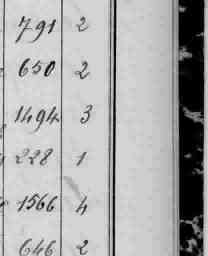 791 2
650 2
1494 3
228 1
1566 4
646 2